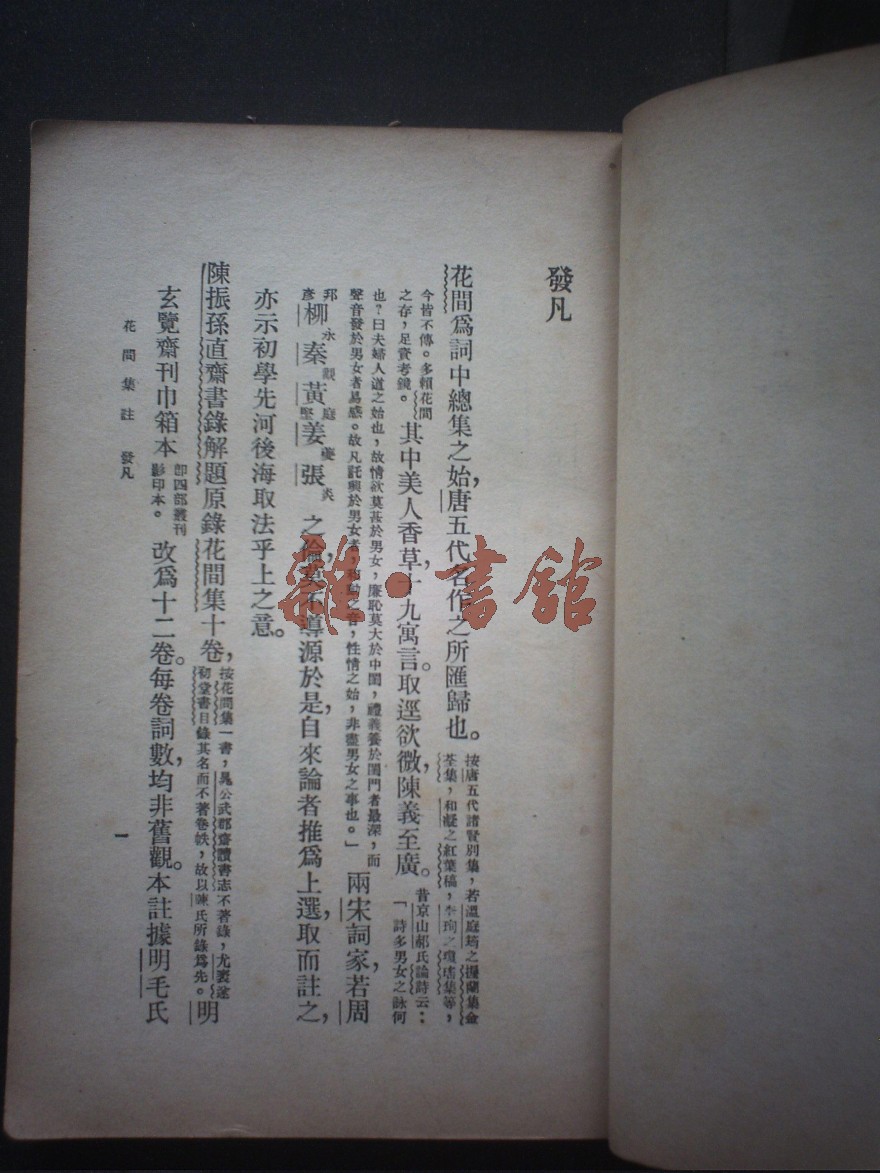 發凡
花間爲詞中總集之始,唐五代名作之所匯歸也。按唐五代諸賢別集,若溫庭筠之握蘭集金荃集,和凝之紅葉稿,李珣之瓊瑤集等,
今皆不傳。多賴花間之存,足資考鏡。其中美人香草,十九寓言。取逕欲微,陳義至廣。昔京山郝氏論詩云:「詩多男女之詠何
也?曰夫婦人道之始也,故情欲莫甚於男女,廉恥莫大於中閨,禮義養於閨門者最深,而聲音發於男女者易感。故凡託興於男女者,和動之音,性情之始,非盡男女之事也。」兩宋詞家,若周
邦彥柳永秦觀黃庭堅姜夔張炎之倫,莫不導源於是,自來論者推爲上選,取而註之,
亦示初學先河後海取法乎上之意。
陳振孫直齋書錄解題原錄花間集十卷,按花間集一書,晁公武郡齋讀書志不著錄,尤袤遂初堂書目錄其名而不著卷帙,故以陳氏所錄爲先。明
玄覽齋刊巾箱本即四部叢刊影印本。改爲十二卷。每卷詞數,均非舊觀。本註據明毛氏
花間集註 發凡 一
雜·書館